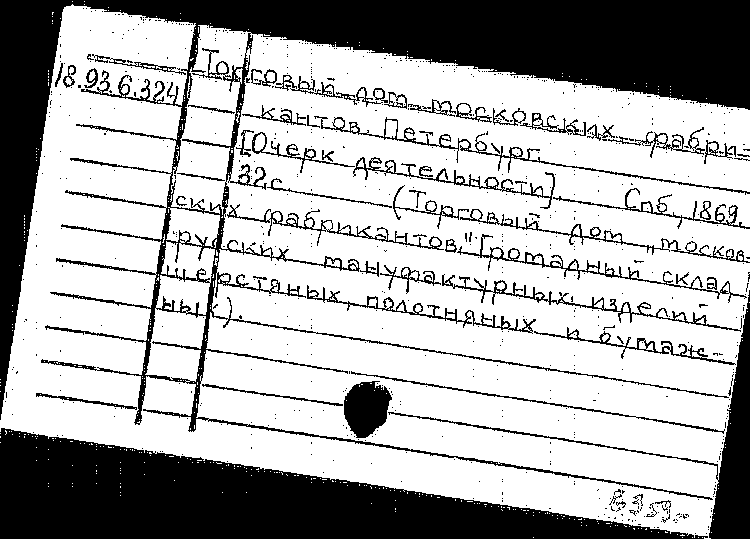 Торговый дом московских фабри-
18.93.6.324
кантов. Петербург.
[Очерк деятельности]. Спб., 1869.
32с. (Торговый дом „москов-
ских фабрикантов." Громадный склад
русских мануфактурных изделий
шерстяных, полотняных и бумаж-
ных).